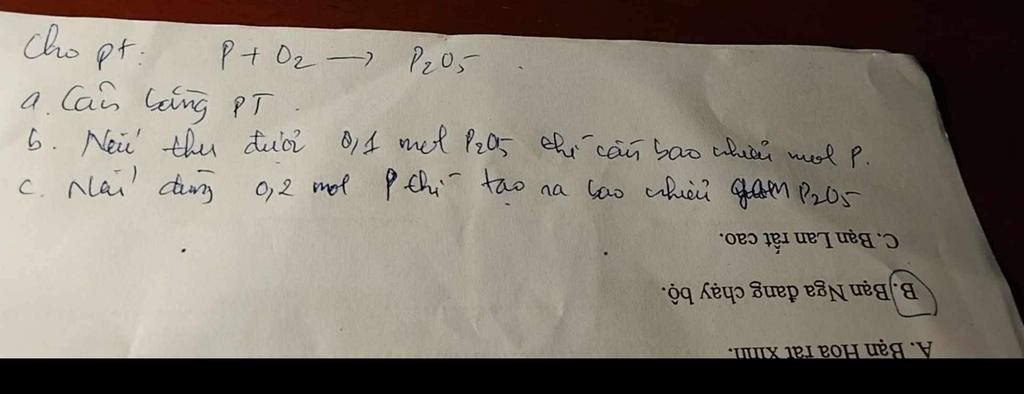 Cho pt: P + O2 → P2O5.
a. Cân bằng PT.
b. Nếu thu được 0,1 mol P2O5 thì cần bao nhiêu mol P.
c. Nếu dùng 0,2 mol P thì tạo ra bao nhiêu gam P2O5
C. Bạn Lan rất cao.
B. Bạn Nga đang chạy bộ.
A. Bạn Hoa rất xinh.